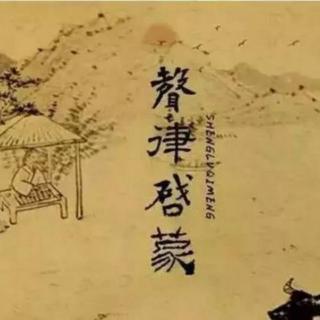 聲律启蒙
SHENGLVQIMENG